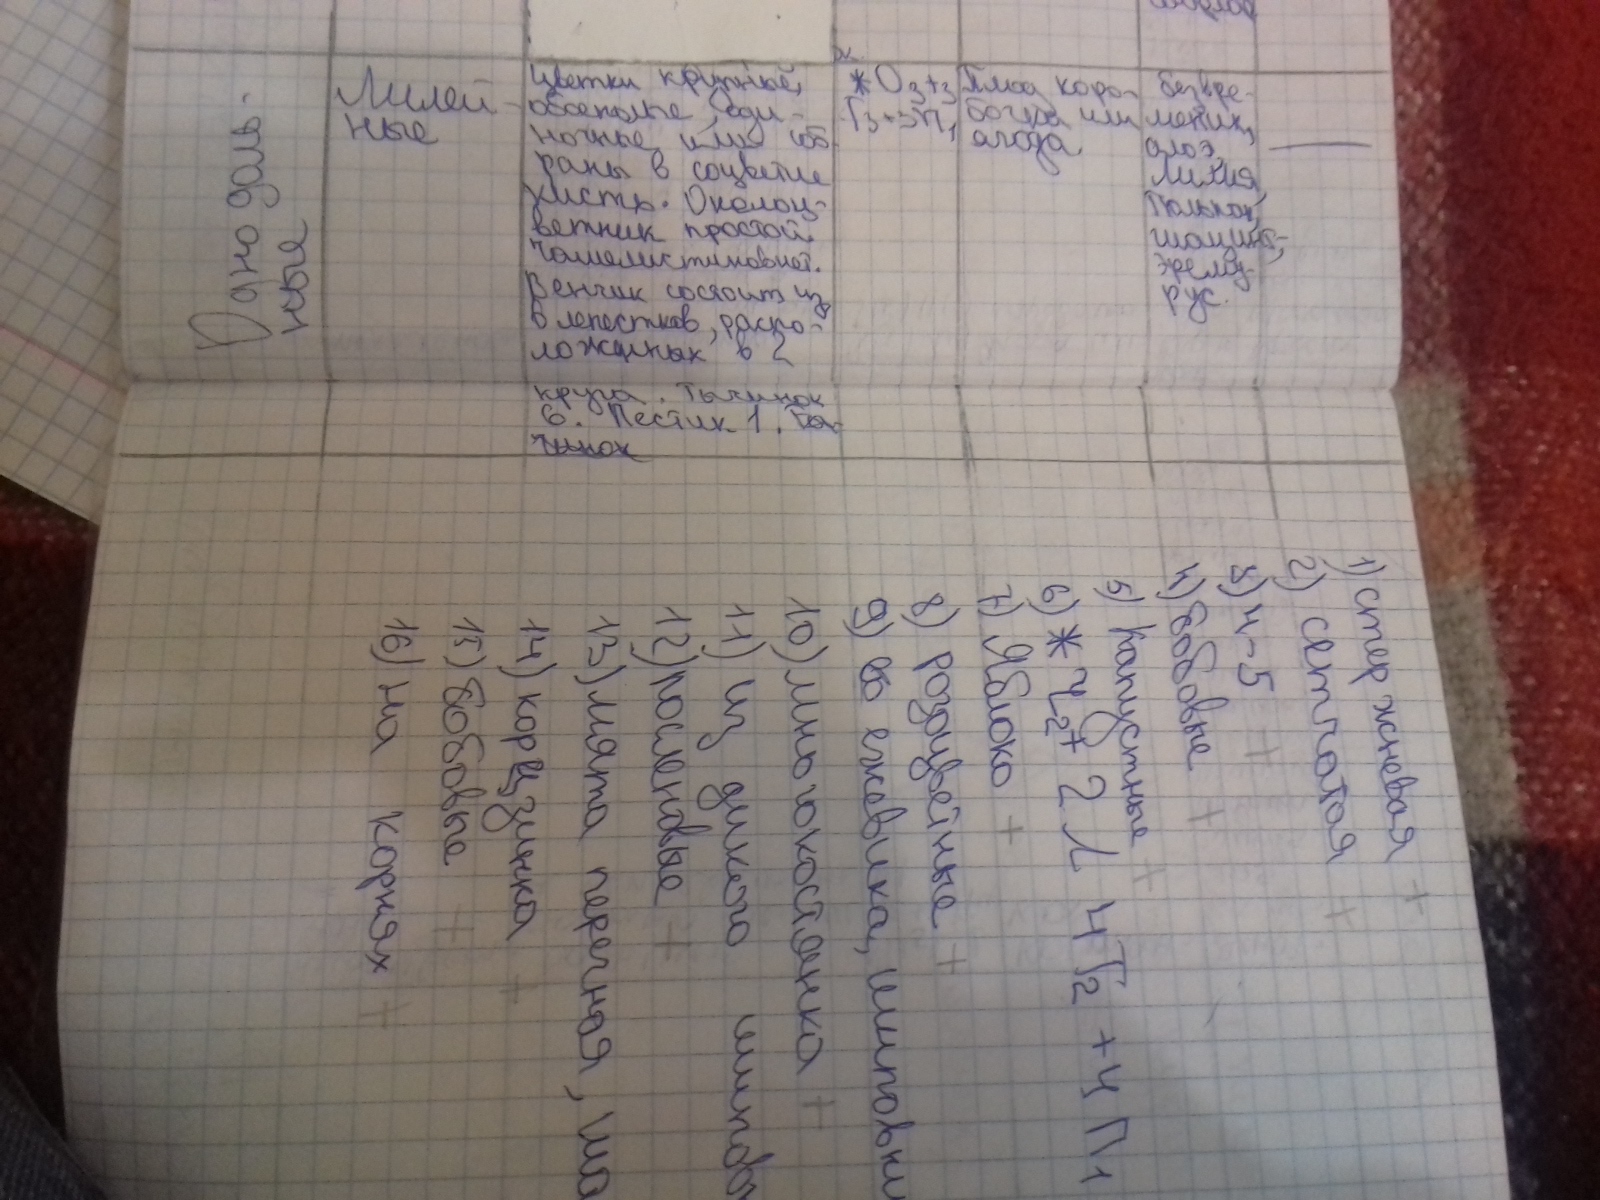 Одно доль-
ные
Лилей-
ные
Цветки крупные,
обоеполые, оди-
ночные или соб
раны в соцветие
кисть. Околоц-
ветник простой
чашелистиковидн.
Венчик состоит из
6 лепестков, распо-
ложенных в 2
круга. Тычинок
6. Пестик 1. Ты-
чинок
*О3+3
Т3+3П1
Плод коро-
бочка или
ягода
безвре-
меник,
алоэ,
лилия,
тюльпан,
эрему-
рус.
1) стержневая +
2) сетчатая +
3) 4-5 +
4) бобовые +
5) Капустные +
6) * Ч2+2 Л4 Т2+4 П1
7) Яблоко +
8) розоцветные +
9) ежевика, шиповни
10) многокостянка +
11) из дикого
12) пасленовые +
13) мята перечная, ша
14) корзинка +
15) бобовые +
16) на корнях +